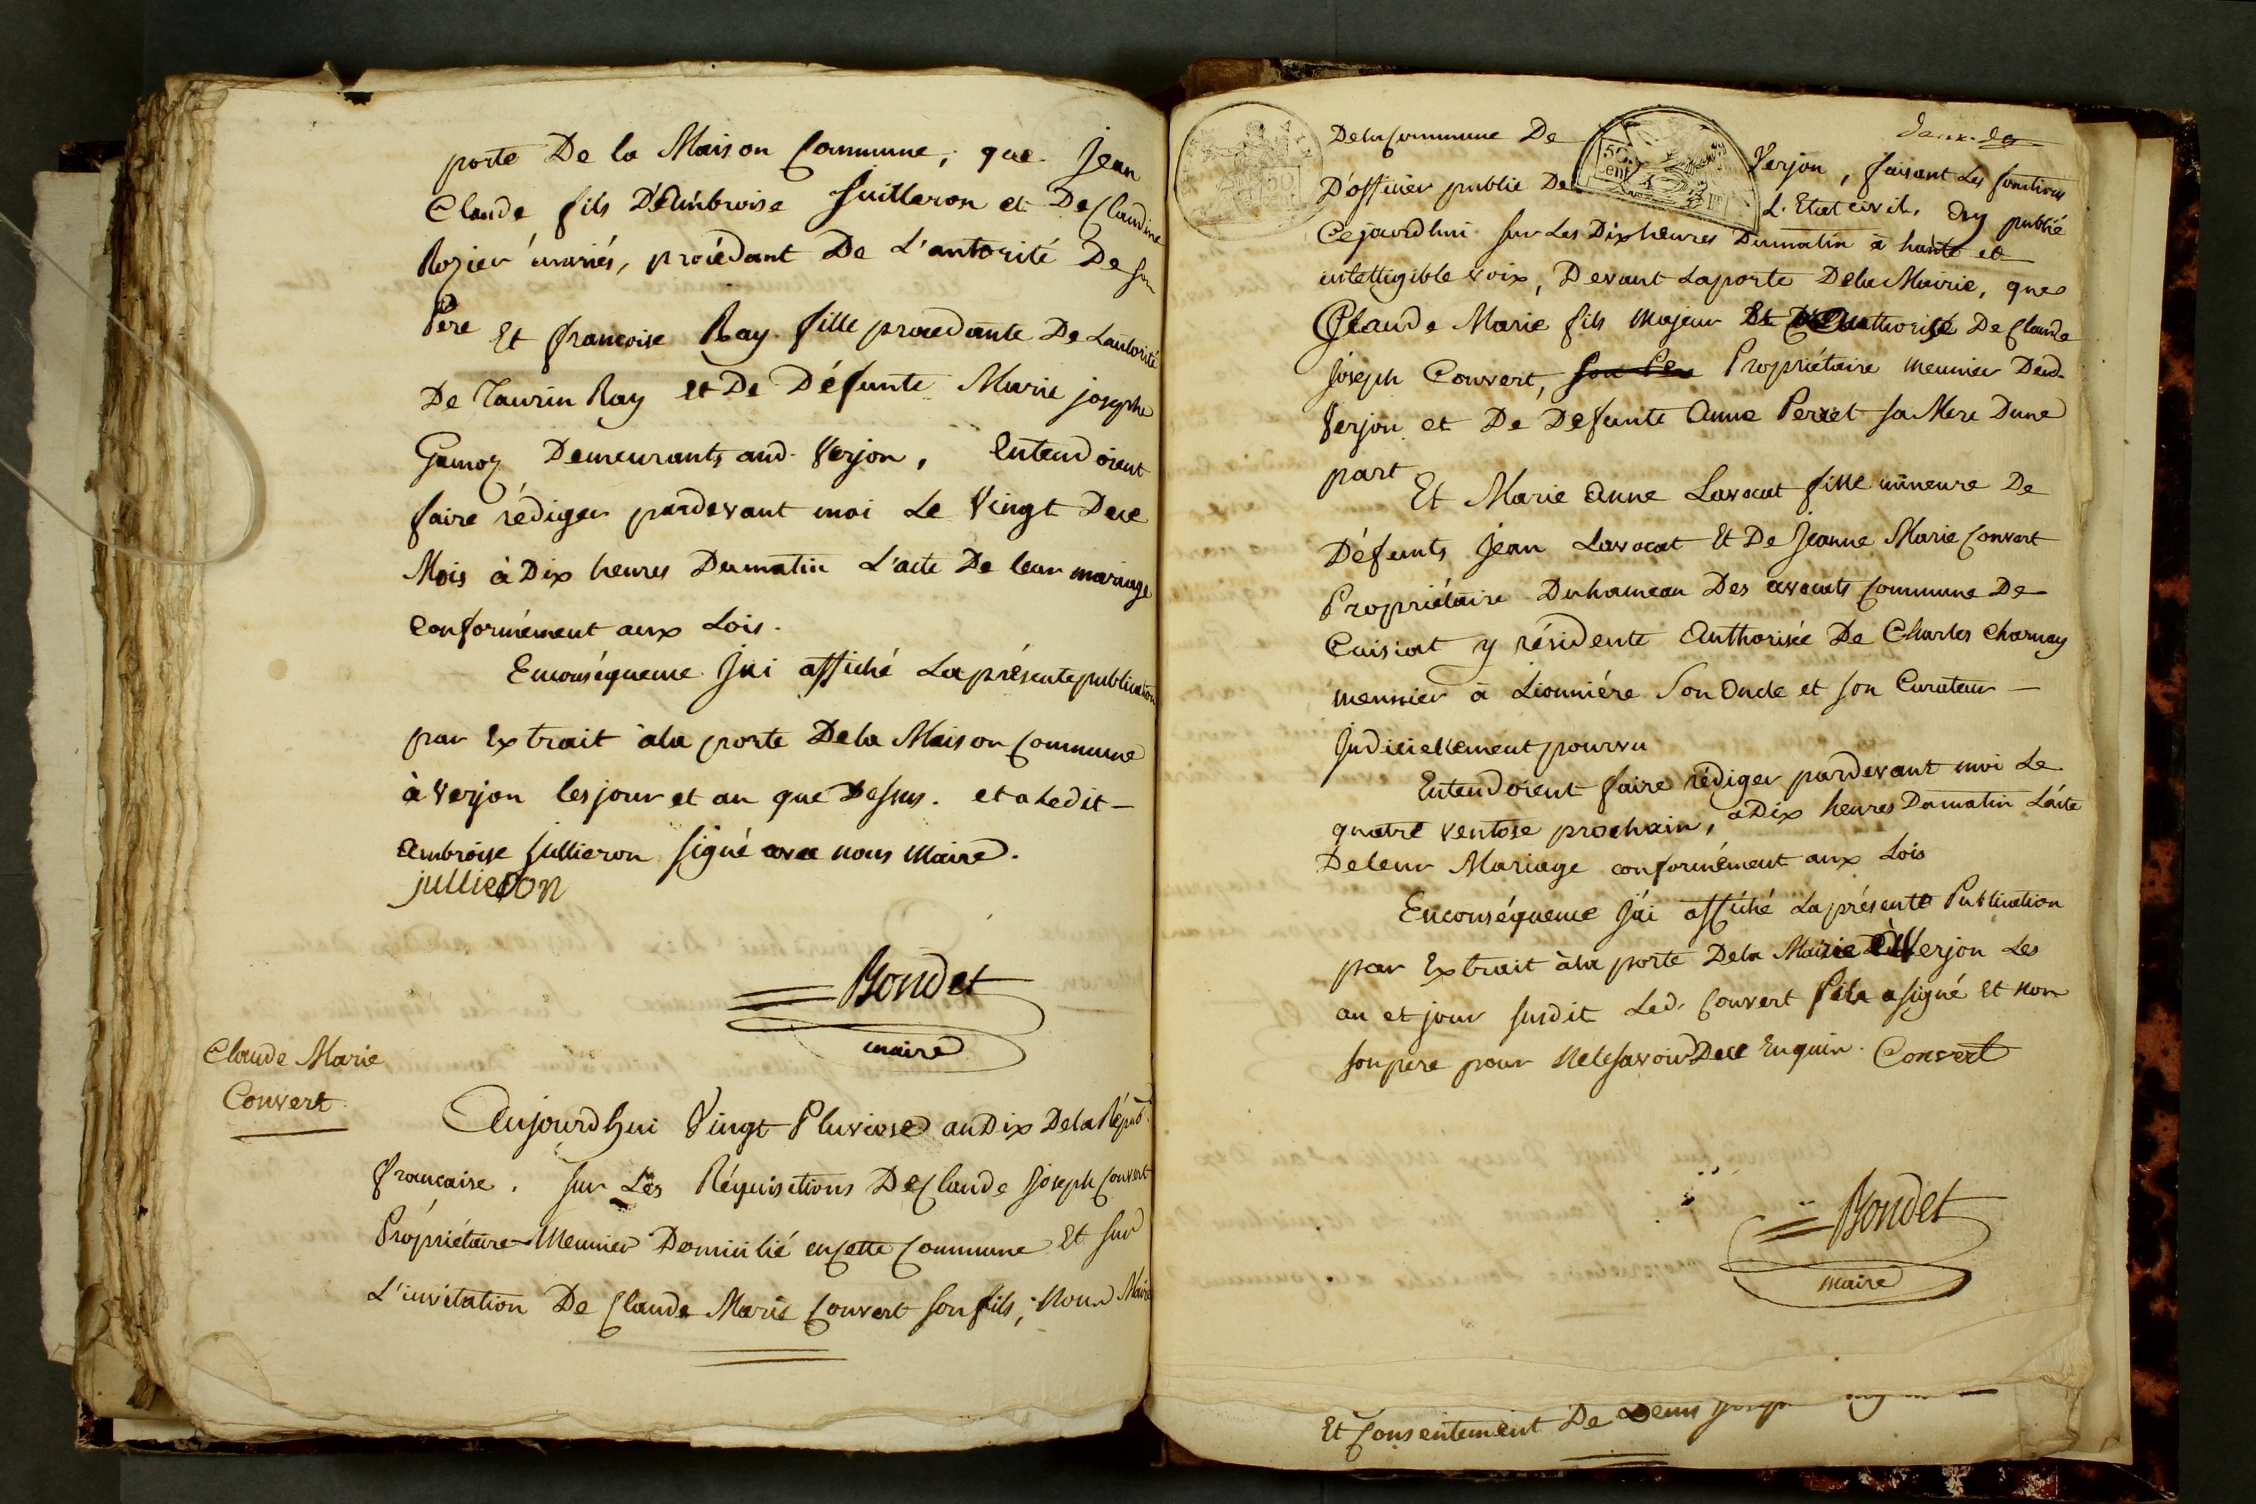 porte De la Maison Commune, que Jean
Claude fils D'Ambroise Juilleron et De Claudine
Rozier mariés, procédant De L'autorité De son
Pere Et françoise Ray fille procedante De Lautorité
De Taurin Ray et De Défunte Marie josephe
Gamoz Demeurants aud. Verjon, Entendoient
faire rédiger pardevant moi Le Vingt Dece
Mois à Dix heures Dumatin L'acte De leur mariage
conformément aux Lois.
Enconséquence J'ai affiché Laprésente publication
par Extrait àla porte Dela Maison Commune
à Verjon les jour et an que Dessus. et a Ledit
Ambroise Jullieron signé avec nous Maire.
jullieron
Bondet
maire
Claude Marie
Convert
Aujourdhui Vingt Pluviose anDix DelaRépub.
française. sur Les Réquisitions DeClaude Joseph Convert
Propriétaire Meunier Domicilié encette Commune Et sur
L'invitation De Claude Marie Convert son fils, Nous Maire
Delacommune De Verjon, faisant Les fonctions
D'officier public De L'Etat civil. Ay publié
Cejourdhui sur Les Dix heures Dumatin à haute et
intelligible voix, Devant Laporte Dela Mairie, que
Claude Marie fils Majeur Et Authorisé De Claude
Joseph Convert, son Pere Propriétaire meunier Dud.
Verjon et De Defunte Anne Perret sa Mere Dune
part Et Marie Anne Lavocat fille mineure De
Défunts Jean Lavocat Et De Jeanne Marie Convert
Propriétaire Duhameau Des avocats Commune De
Cuisiat y résidente Authorisée De Charles Charnay
meunier à Lionniére Son Oncle et son Curateur
Judiciellement pourvu
Entendoient faire rédiger pardevant moi Le
quatre ventose prochain, à Dix heures Dumatin L'acte
Deleur Mariage conformément aux Lois
Enconséquence J'ai affiché La présente Publication
par Extrait àla porte Dela Mairie Verjon Les
an et jour susdit Led. Convert fils a signé Et non
sonpere pour Nelesavoir Dece Enquin. Convert
Bondet
maire
Et Consentement De